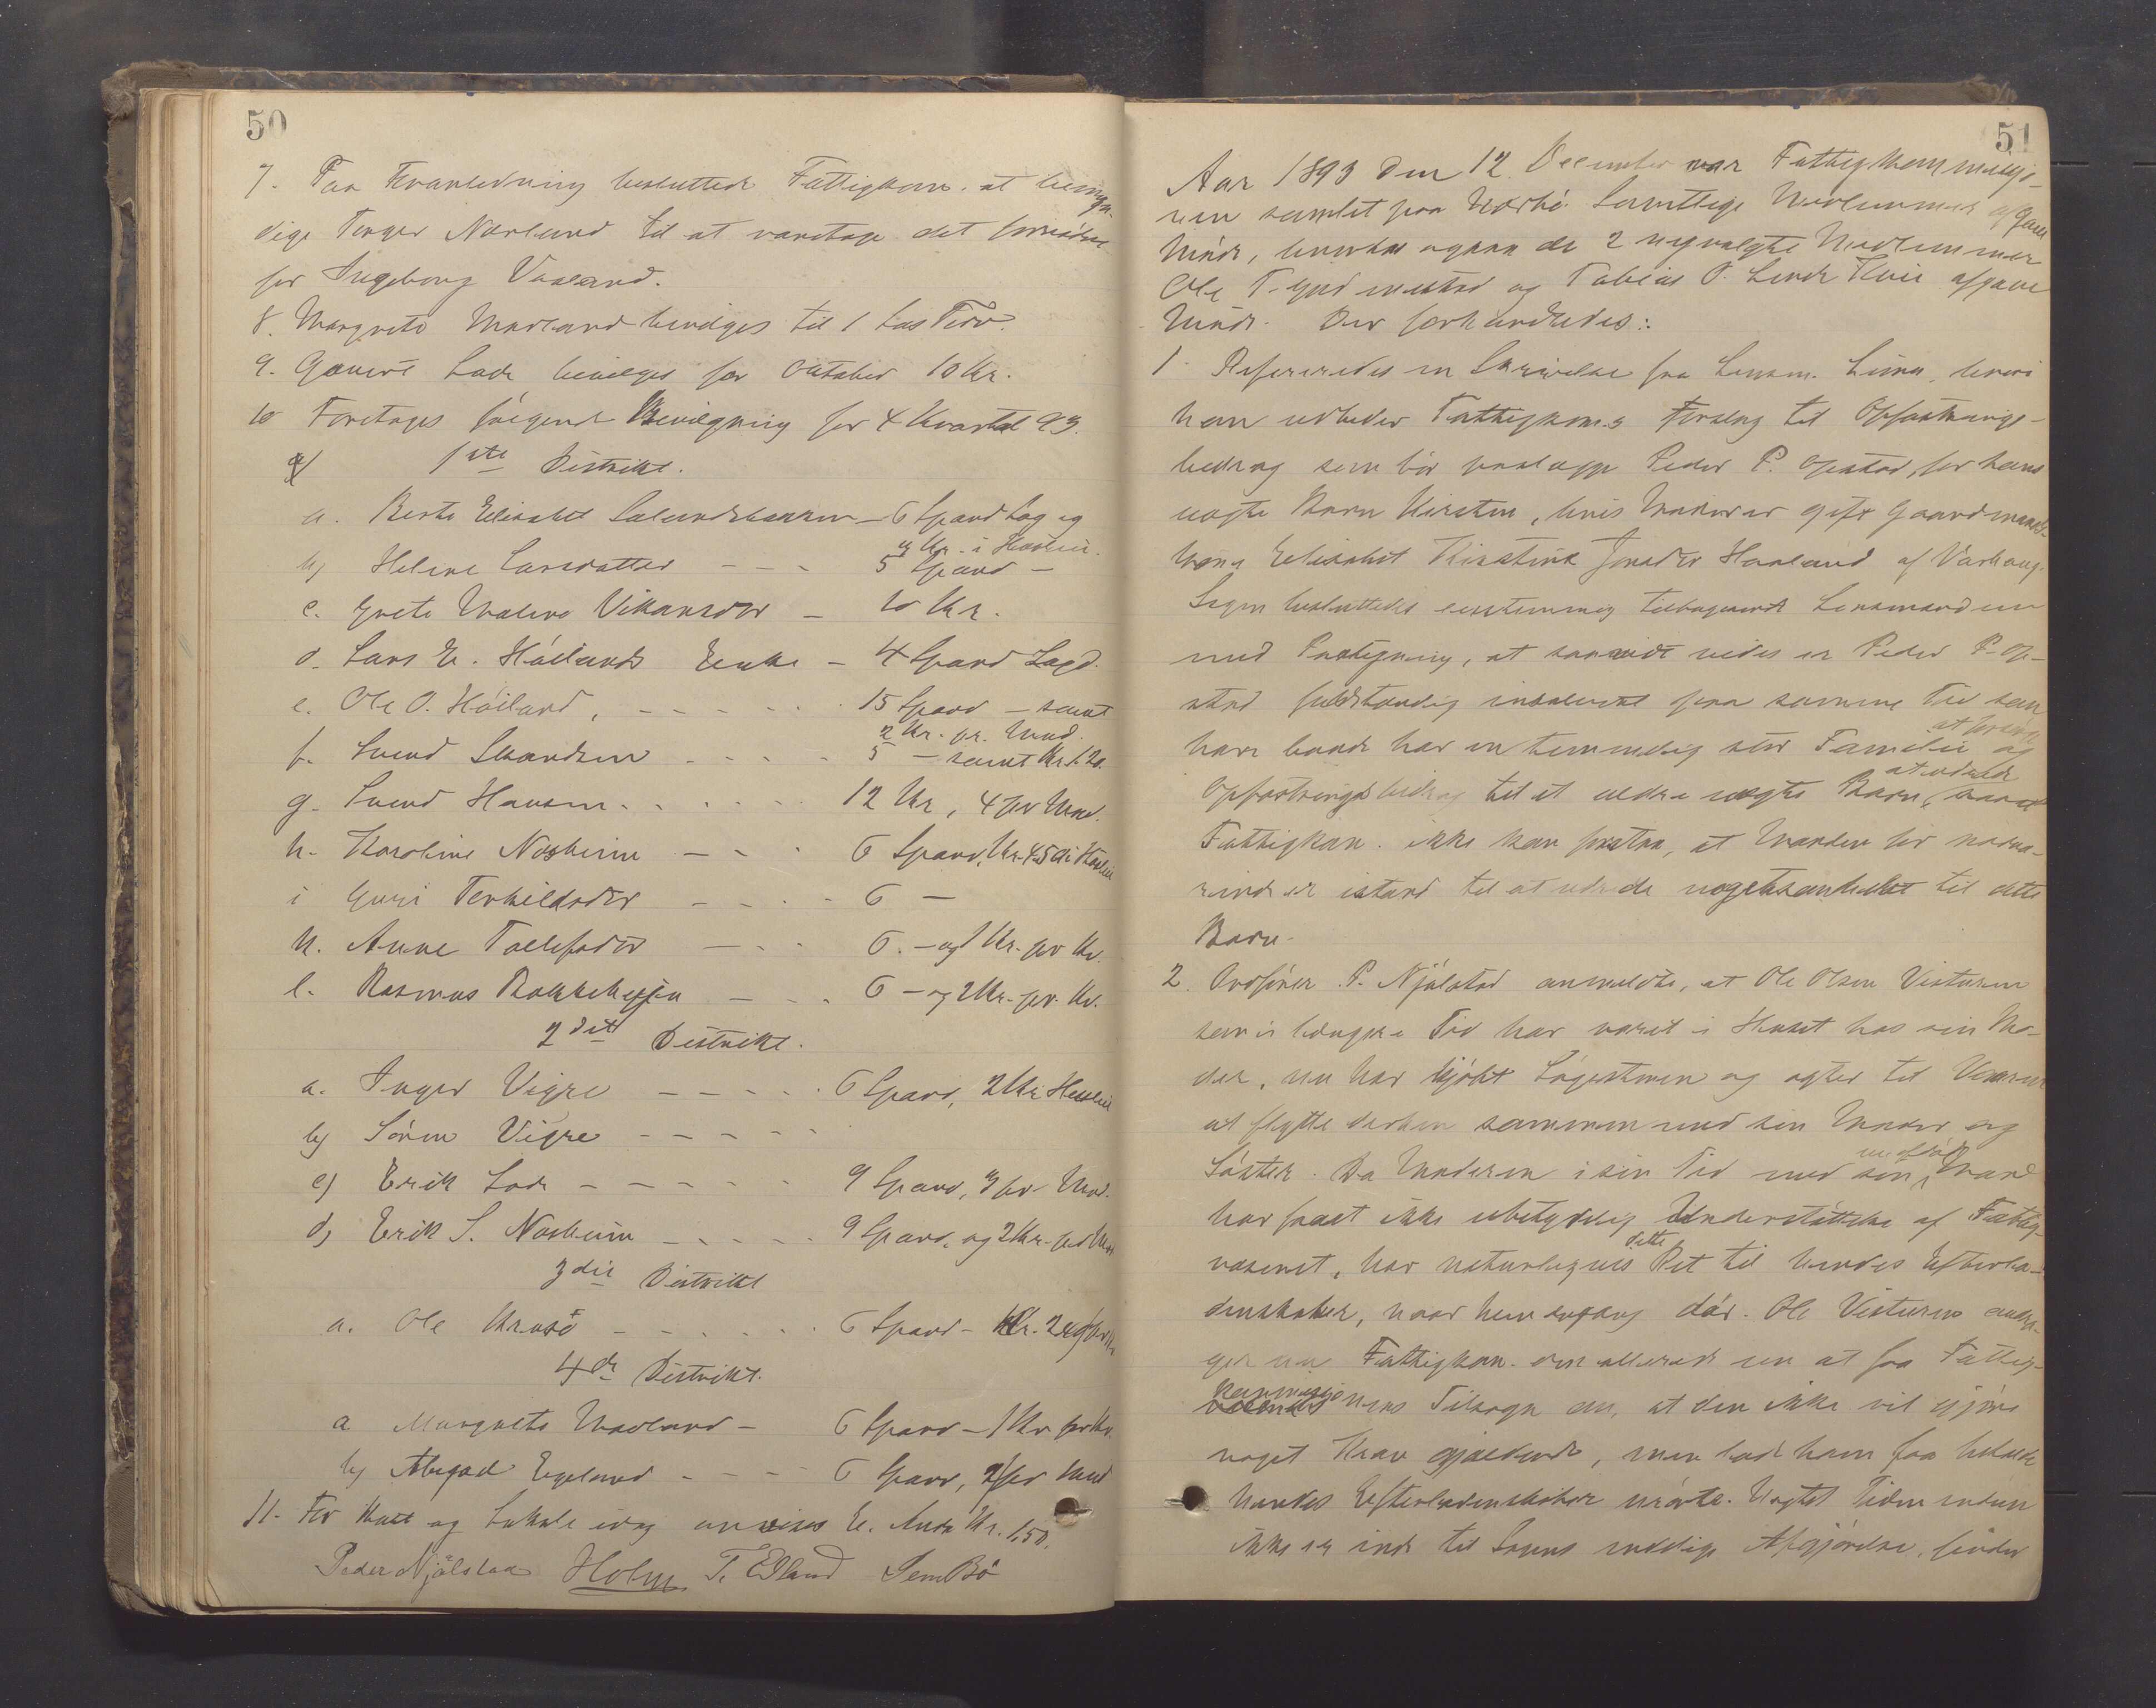 50
7. Paa Foranledning besluttede Fattigkom. at bemyn-
dige Torger Nærland til at varetage det fornødne
for Ingeborg Vaaland.
8. Margrete Madland bevilges til 1 Læs Torv.
9. Lade bevilges for Oktober 10 Kr.
10 Foretages følgende Bevilgning for 4 Kvartal 93.
1ste Distrikt.
a. Berte Elisabet 6 Spand Læg og
3 Kr. i Husleie.
b) Helene Larsdatter - - - 5 Spand -
c. Grete Malene - 10 Kr.
d. Lars E. Høilands Enke - 4 Spand Lægd.
e. Ole O. Høiland, - - - - - 15 Spand - samt
2 Kr. pr. Mnd.
f. Svend - - - - 5 - samt Kr. 1.20.
g. Svend Hansen - - - - - 12 Kr, 4 pr Mnd.
h. Karoline Nærheim - - - 6 Spand, Kr. 4.50 i Husleie
i Guri Terkildsdtr - - - - 6 -
k. Anne Tollefsdtr - - - 6. - og 1 Kr. pr Kv.
l. Rasmus - - - 6 - og 2 Kr. pr. Kv.
2det Distrikt.
a. Inger Vigre - - - - - 6 Spand, 2 Kr. Husleie
b) Søren Vigre - - - - -
c) Erik Lode - - - - - 9 Spand, 3 pr. Mnd.
d) Erik S. Nærheim - - - - - 9 Spand, og 2 Kr. pr. Mnd
3die Distrikt
a. Ole - - - - - - 6 Spand - Kr. 2
4de Distrikt.
a Margrete Madland - 6 Spand - 1 Kr pr Kv.
b) Egeland - - - - 6 Spand, 2 pr Mnd
11. For Kost og Lokale idag anvises E. Anda Kr. 1.50.
Peder Njølstad Holm T. Edland Sem Bø
51
Aar 1893 den 12 December var Fattigkommissjo-
nen samlet paa Nærbø. Samtlige Medlemmer af gave
Møde, hvorhos ogsaa de 2 nyvalgte Medlemmer
Ole T. Gudmestad og Tobias O. Lende Kvie afgave
Møde. Der forhandledes:
1. Refereredes en Skrivelse fra Lensm. Lima, hvori
han udbeder Fattigkom.s Forslag til Opfostrings-
bidrag som bør paalægges Peder P. Opstad, for hans
uægte Barn Kirsten, hvis Moder er gift Gaardmands-
kone Elisabet Kirstine Jonsdtr Haaland af Varhaug.
Sagen besluttedes eenstemmig tilbagesendt Lensmanden
med Paategning, at saavidt vides er Peder P. Op-
stad fuldstændig insolvent paa samme Tid som
at forsørge
han baade har en temmelig stor Familie og
at udrede
Opfostringsbidrag til et ældre uægte Barn,
Fattigkom. ikke kan forstaa, at Manden for nærvæ-
rende er istand til at udrede nogetsomhelst til dette
Barn.
2. Ordfører P. Njølstad anmeldte, at Ole Olsen Visturen
som i længere Tid har været i Huset hos sin Mo-
der, nu har kjøbt og agter til Vaaren
at flytte derhen sammen med sin Moder og
Søster. Da Moderen i sin Tid med sin Mand
har faaet ikke ubetydelig Understøttelse af Fattig-
dette
væsenet, har naturligvis Ret til hendes Efterla-
denskaber, naar hun engang dør. Ole Visturen anmo-
der nu Fattigkom. om allerede nu at faa Fattig-
kommissjonens Tilsagn om, at den ikke vil gjøre
noget Krav gjældende, men lade ham faa beholde
hendes Efterladenskaber urørte. Uagtet Tiden endnu
ikke er inde til Sagens endelige Afgjørelse, finder